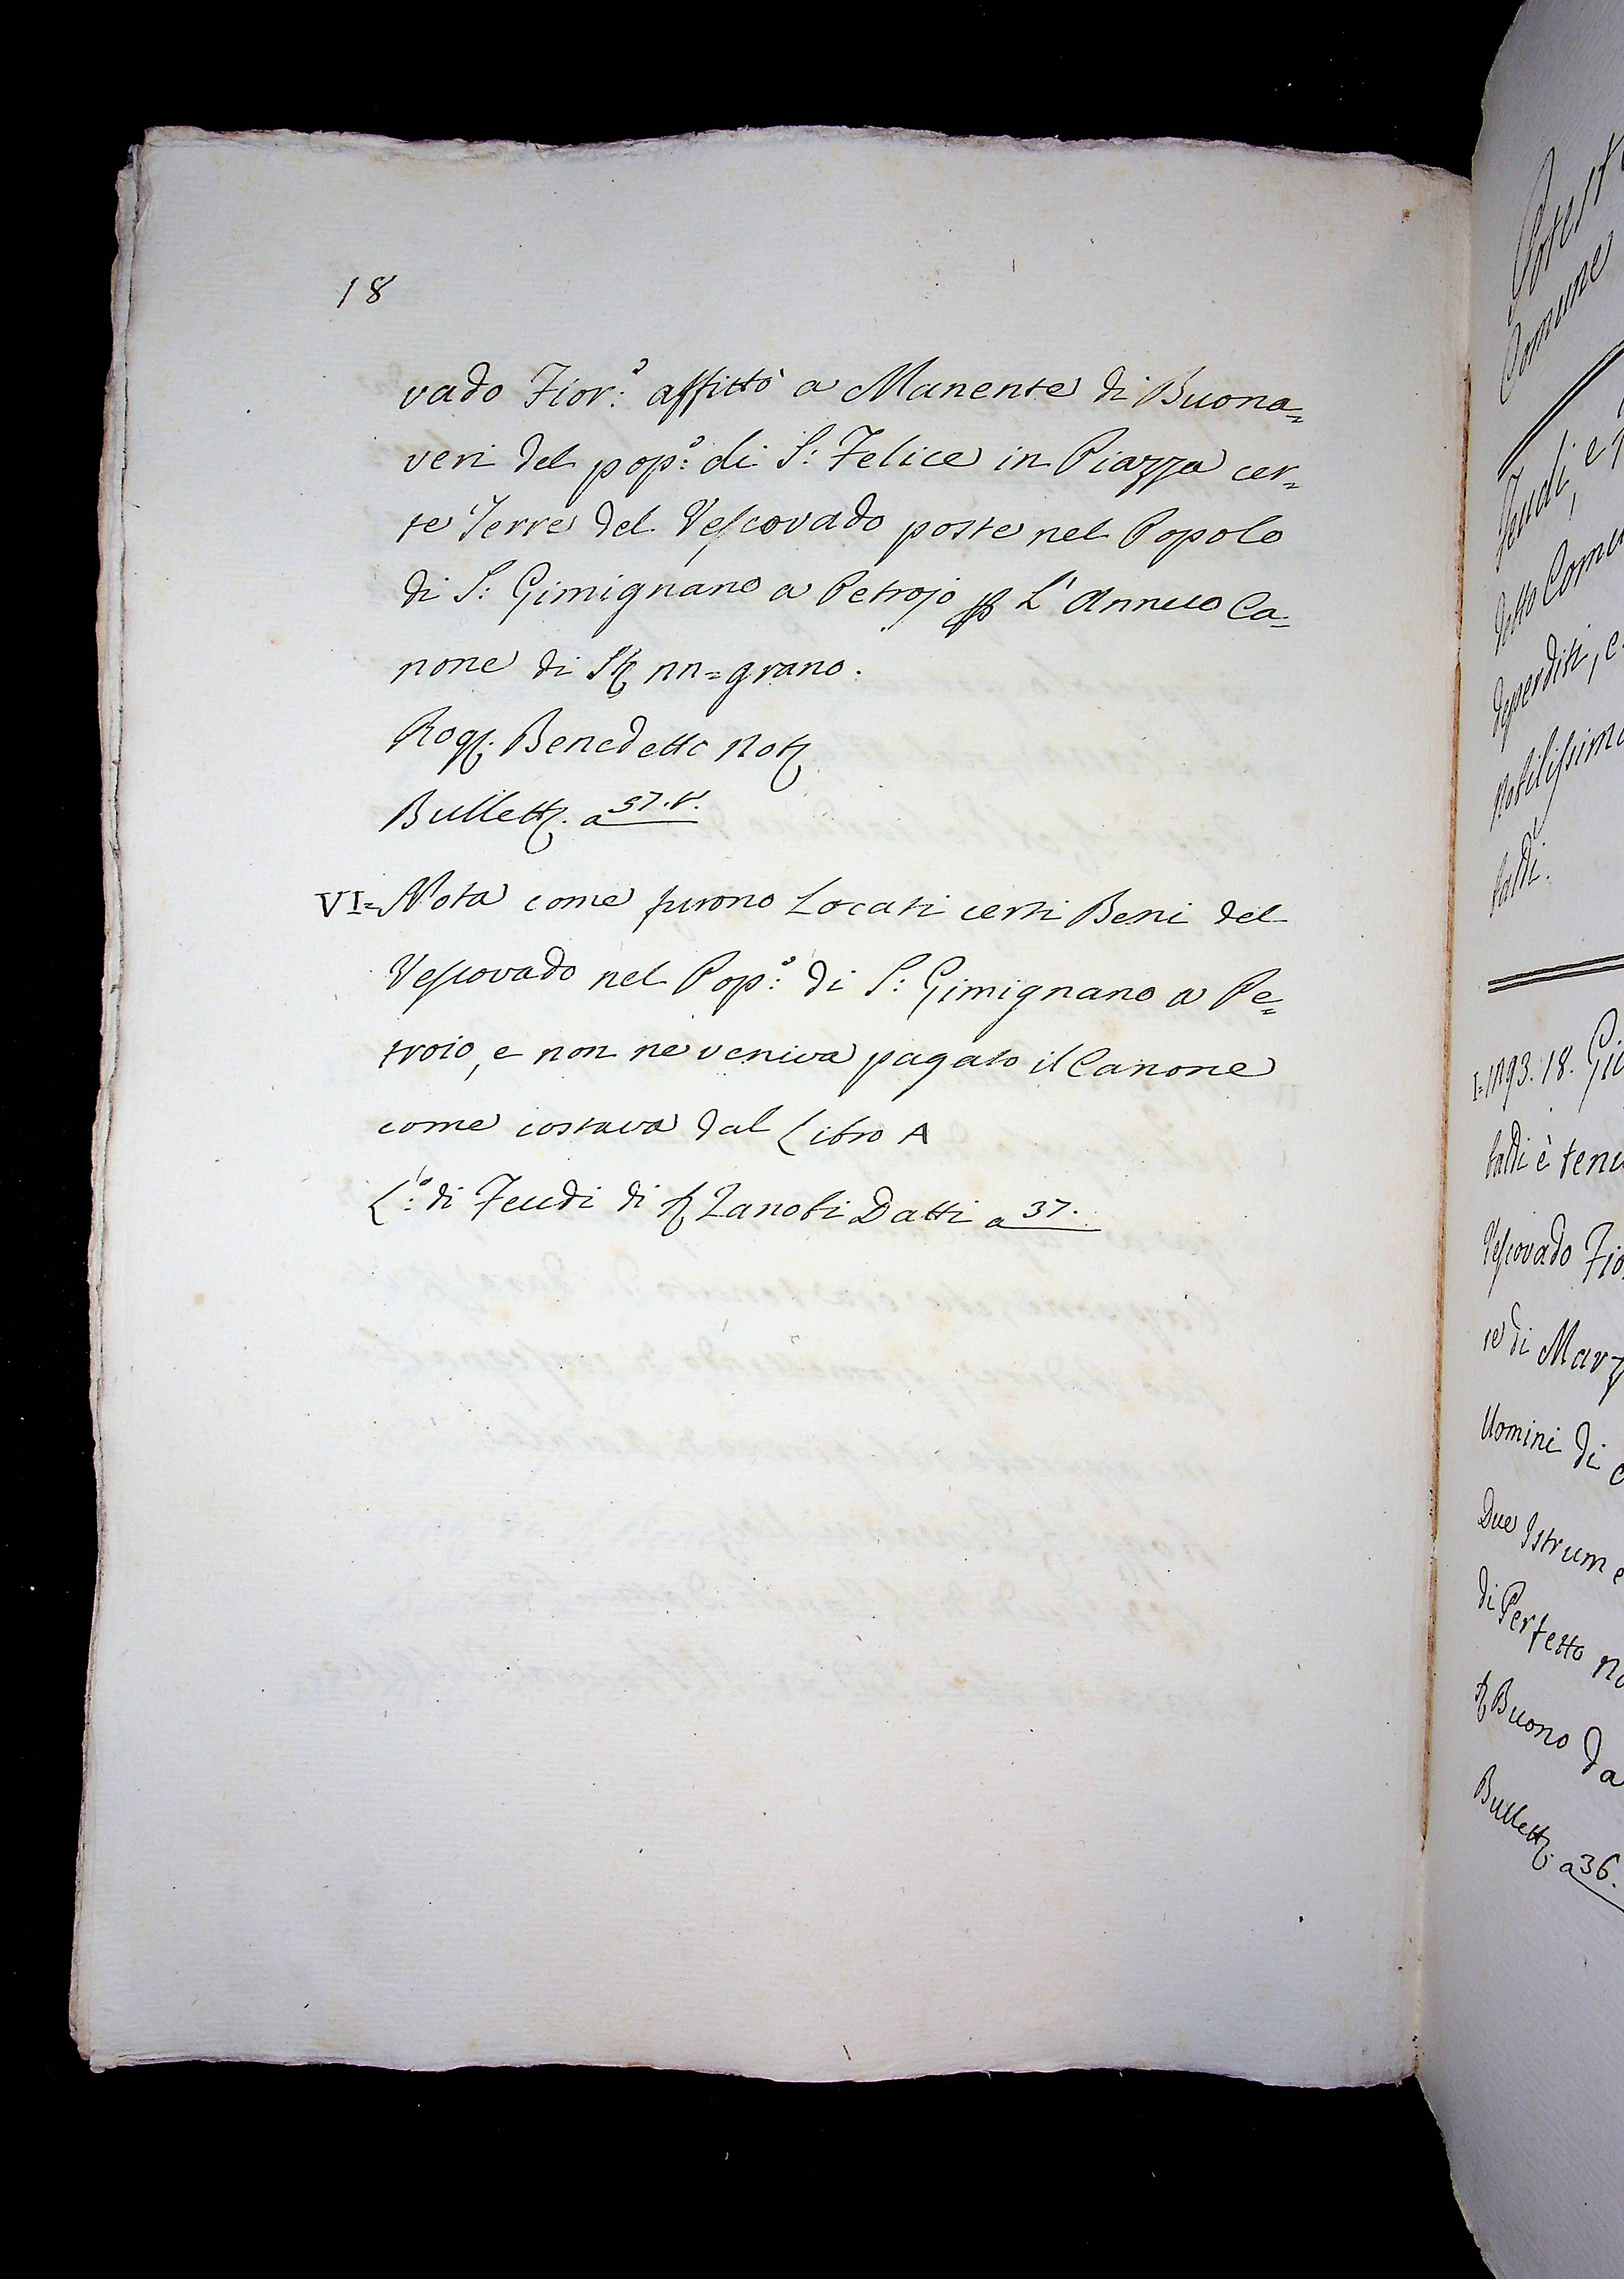 18
vado Fior:° affittò a Manente di Buona=
veri del pop:° di S: Felice in Piazza cer=
te Terre del Vescovado poste nel Popolo
di S: Gimignano a Petrojo L'Annuo Ca=
none di grano.
Rog. Benedetto Not
Bullett. a 37.
VI= Nota come furono Locati certi Beni del
Vescovado nel Pop:° di S: Gimignano a Pe=
troio, e non ne veniva pagato il Canone
come costava dal Libro A
L:° di Feudi di Zanobi Datti a 37.
Comune
Feudi, e
detto
deperditi, e
baldi.
I= 18.
baldi è
Vescovado
te di
Uomini di
Due
di Perfetto
Buono da
Bullett. a 36.